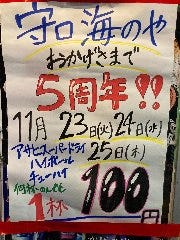 守口海のや
おかげさまで
5周年!!
11月23日(火)24日(水)
25日(木)
アサヒスーパードライ
ハイボール
チューハイ
何杯のんでも
1杯100円